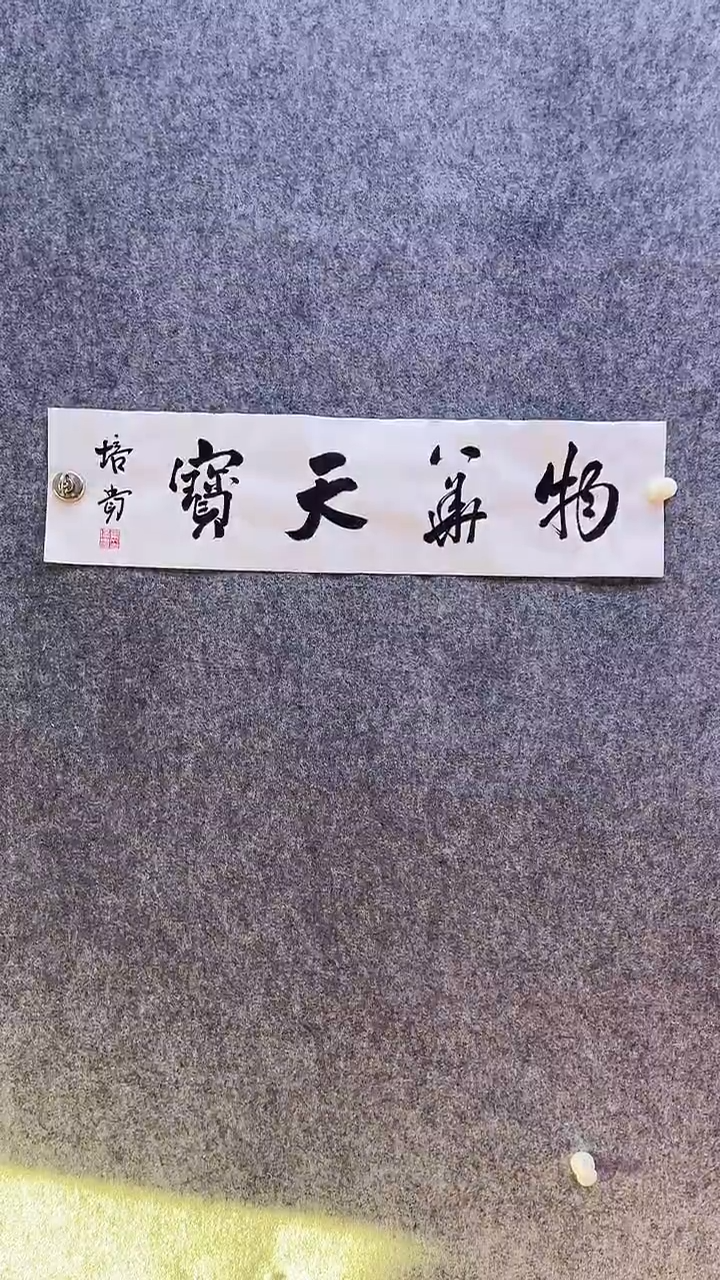 物華天寶
培貴